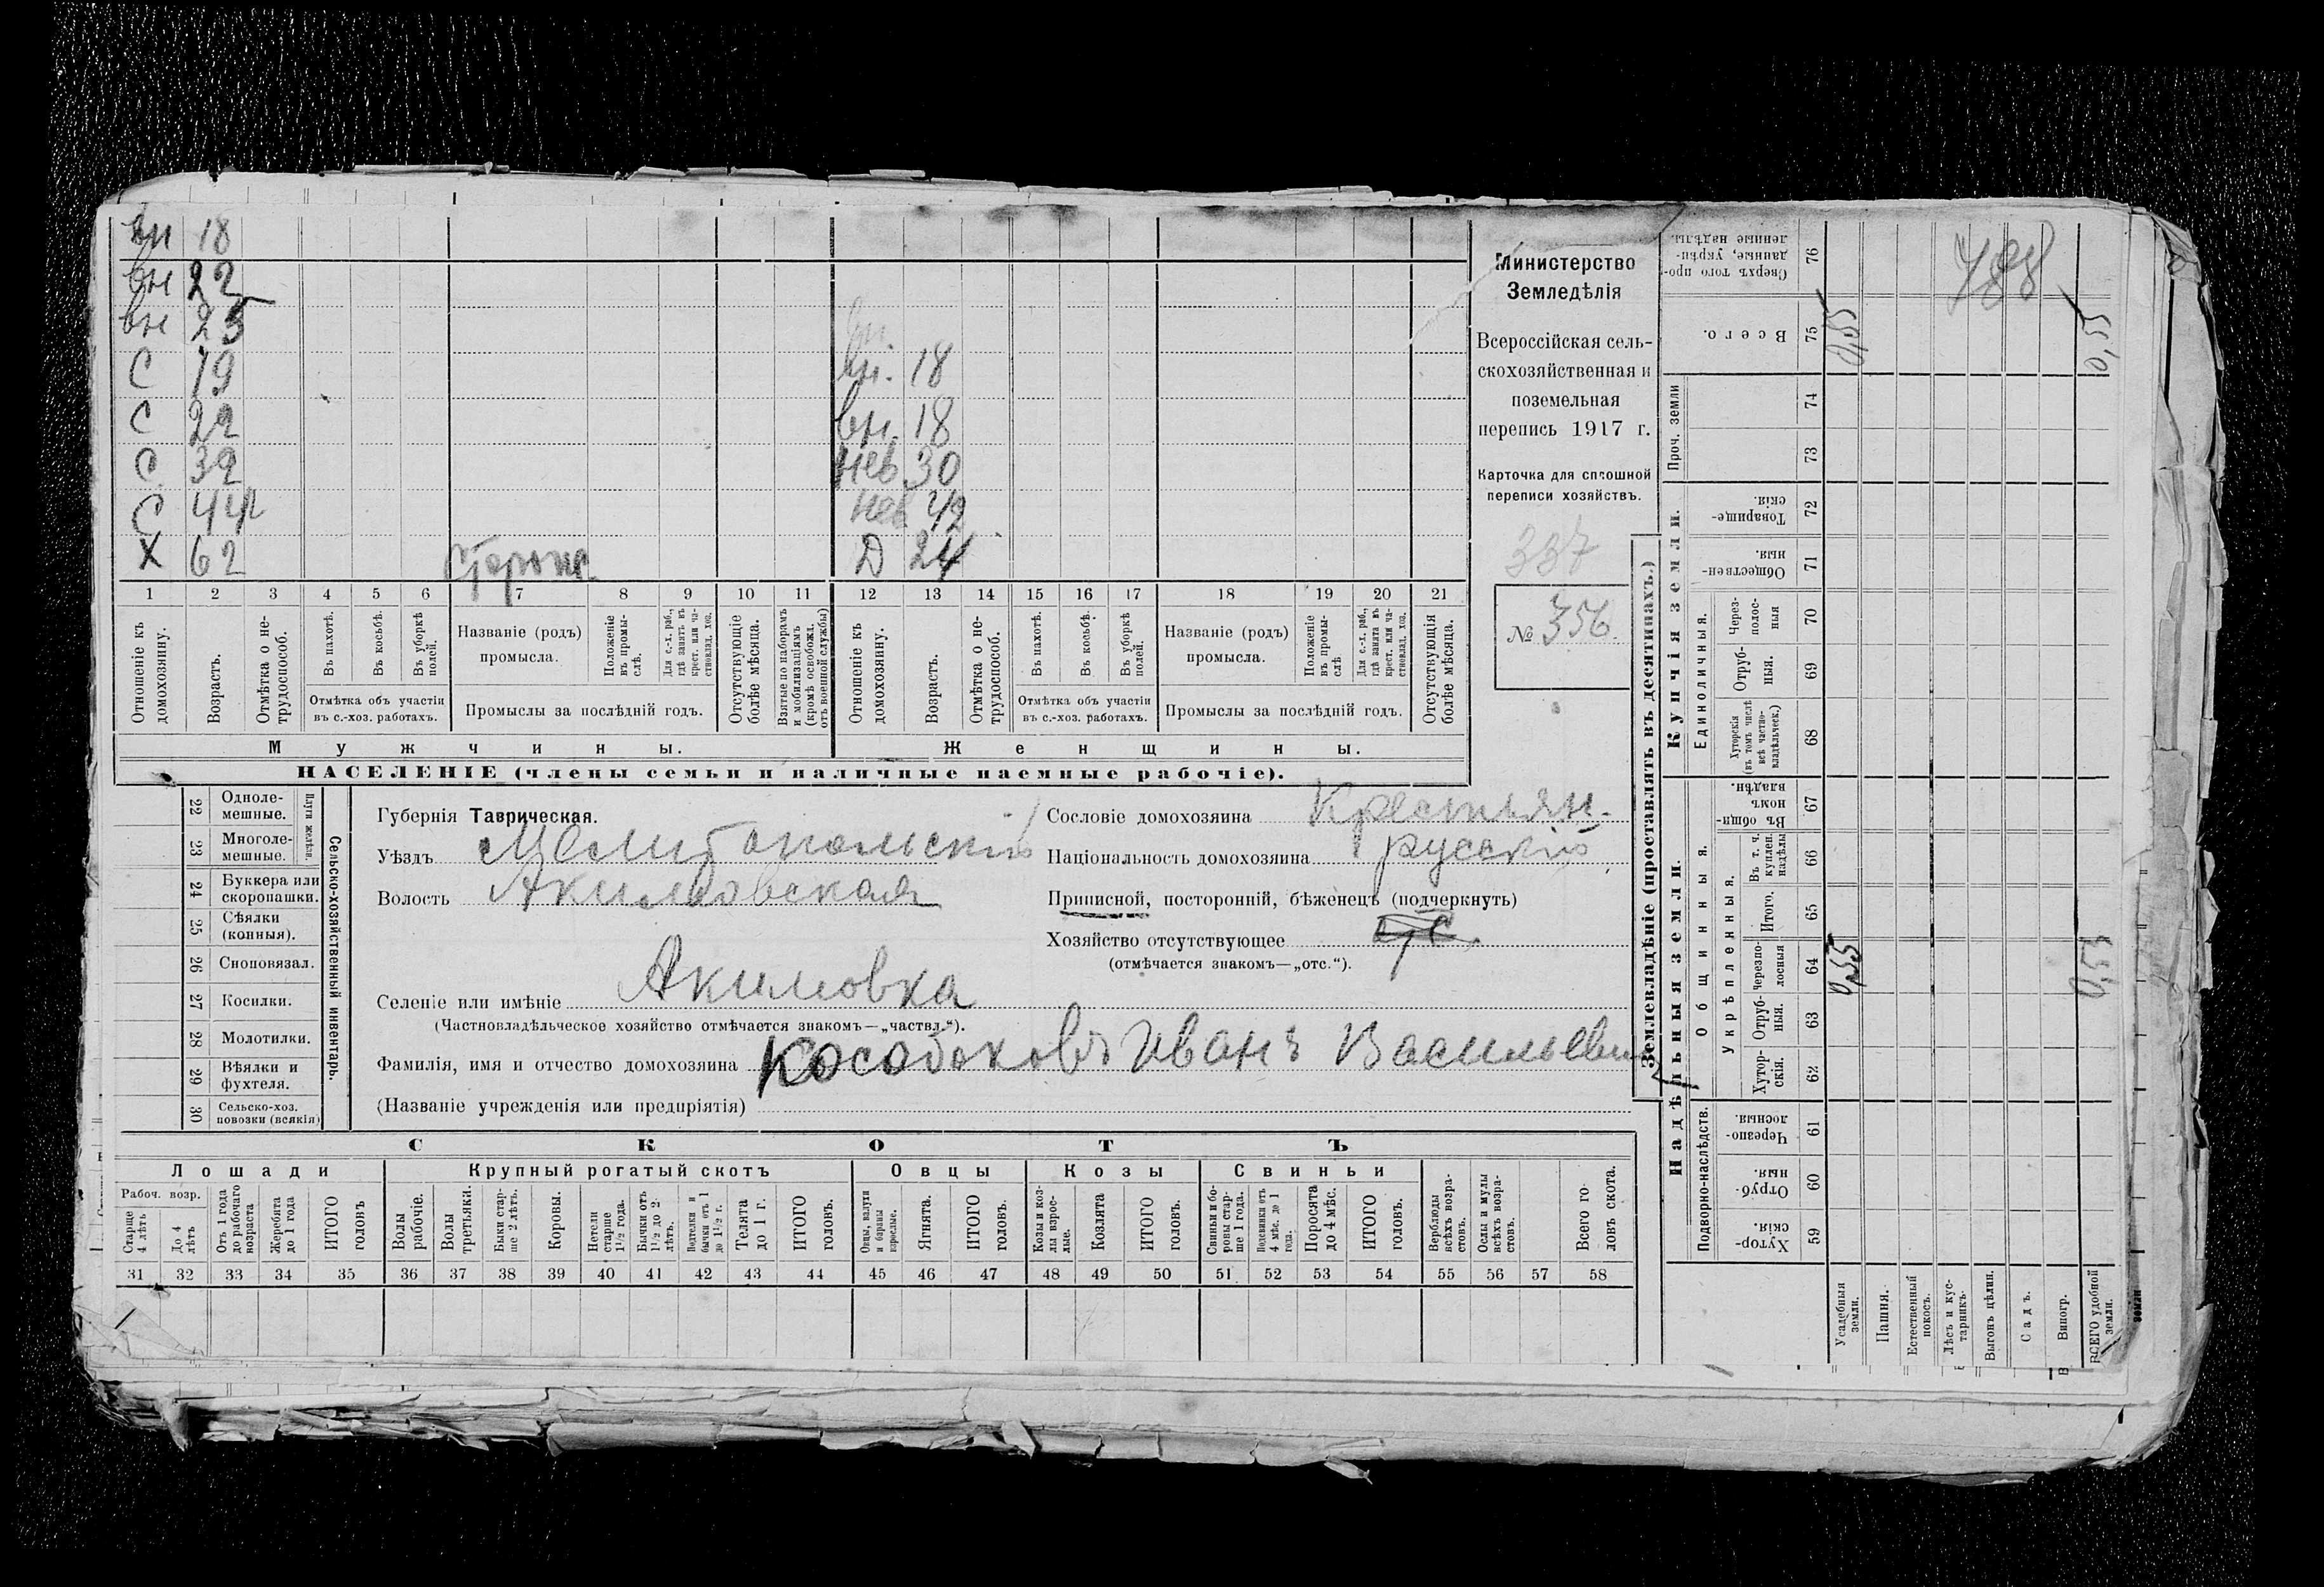 вн 18
вн 22
вн 25
С 19
С 22
С 39
С 44
Х 62
вн.
вн. 18
вн. 18
нев 30
нев 42
Д 24
1 2 3 4 5 6 7 8 9 10 11 12 13 14 15 16 17 18 19 20 21
Отношеніе къ домохозяину.
Возрастъ.
Отмѣтка о не-трудоспособ.
Въ пахотѣ.
Въ косьбѣ.
Въ уборкѣ полей.
Отмѣтка объ участіи въ с.-хоз. работахъ.
Названіе (родъ) промысла.
Положеніе въ промы-слѣ.
Для с.-х. раб., гдѣ занятъ въ крест. или ча-стновлад. хоз.
Промыслы за послѣдній годъ.
Отсутствующіе болѣе мѣсяца.
Взятые по наборамъ и мобилизаціямъ (кромѣ освобожд. отъ военной службы)
Отношеніе къ домохозяину.
Возрастъ.
Отмѣтка о не-трудоспособ.
Въ пахотѣ.
Въ косьбѣ.
Въ уборкѣ полей.
Отмѣтка объ участіи въ с.-хоз. работахъ.
Названіе (родъ) промысла.
Положеніе въ промы-слѣ
Для с.-х. раб., гдѣ занята въ крест. или ча-стновлад. хоз.
Промыслы за послѣдній годъ.
Отсутствующія болѣе мѣсяца.
Мужчины.
Женщины.
НАСЕЛЕНІЕ (члены семьи и наличные наемные рабочіе).
Министерство
Земледѣлія
Всероссійская сель-
скохозяйственная и
поземельная
перепись 1917 г.
Карточка для сплошной
переписи хозяйствъ.
337
№ 356.
22 Одноле-мешные.
23 Многоле-мешные.
Плуги желѣзн.
24 Буккера или скоропашки.
25 Сѣялки (конныя).
26 Сноповязал.
27 Косилки.
28 Молотилки.
29 Вѣялки и фухтеля.
30 Сельско-хоз. повозки (всякія)
Сельско-хозяйственный инвентарь.
Губернія Таврическая.
Уѣздъ Мелитопольскій
Волость Акимовская
Селеніе или имѣніе Акимовка
(Частновладѣльческое хозяйство отмѣчается знакомъ—„частвл.“).
Фамилія, имя и отчество домохозяина Кособоковъ Иванъ Васильевич
(Названіе учрежденія или предпріятія)
Сословіе домохозяина Крестьян.
Національность домохозяина русскій
Приписной, посторонній, бѣженецъ (подчеркнуть)
Хозяйство отсутствующее
(отмѣчается знакомъ—„отс.“).
СКОТЪ
Лошади
Крупный рогатый скотъ
Овцы
Козы
Свиньи
Рабоч. возр.
Старше 4 лѣтъ
До 4 лѣтъ
Отъ 1 года до рабочаго возраста
Жеребята до 1 года
ИТОГО головъ
Волы рабочіе.
Волы третьяки.
Быки стар-ше 2 лѣтъ.
Коровы.
Нетели старше 1½ года.
Бычки отъ 1½ до 2 лѣтъ.
Подтелки и бычки отъ 1 до 1½ г.
Телята до 1 г.
ИТОГО головъ.
Овцы, валухи и бараны взрослые.
Ягнята.
ИТОГО головъ.
Козы и коз-лы взрос-лые.
Козлята
ИТОГО головъ.
Свиньи и бо-ровы стар-ше 1 года.
Подсвинки отъ 4 мѣс. до 1 года.
Поросята до 4 мѣс.
ИТОГО головъ.
Верблюды всѣхъ возра-стовъ.
Ослы и мулы всѣхъ возра-стовъ.
Всего го-ловъ скота.
31 32 33 34 35 36 37 38 39 40 41 42 43 44 45 46 47 48 49 50 51 52 53 54 55 56 57 58
Землевладѣніе (проставлять въ десятинахъ.)
Надѣльныя земли.
Купчія земли.
Проч. земли
Подворно-наслѣдств.
Общинныя.
Укрѣпленныя.
Единоличныя.
Хутор-скія. 59
Отруб-ныя. 60
Черезпо-лосныя. 61
Хутор-скія. 62
Отруб-ныя. 63
Черезпо-лосныя 64
Итого. 65
Въ т. ч. куплен. надѣлы 66
Въ общи-номъ владѣн. 67
Хуторскія (въ томъ числѣ всѣ частно-владѣльческ.) 68
Отруб-ныя. 69
Через-полос-ныя 70
Обществен-ныя. 71
Товарище-скія. 72
73
74
Всего. 75
Сверхъ того про-данные, укрѣп-ленные надѣлы. 76
0,55
0,55
0,55
0,55
788
Усадебныя земли.
Пашня.
Естественный покосъ.
Лѣсъ и кус-тарникъ.
Выгонъ цѣлин.
Садъ.
Виногр.
ВСЕГО удобной земли.